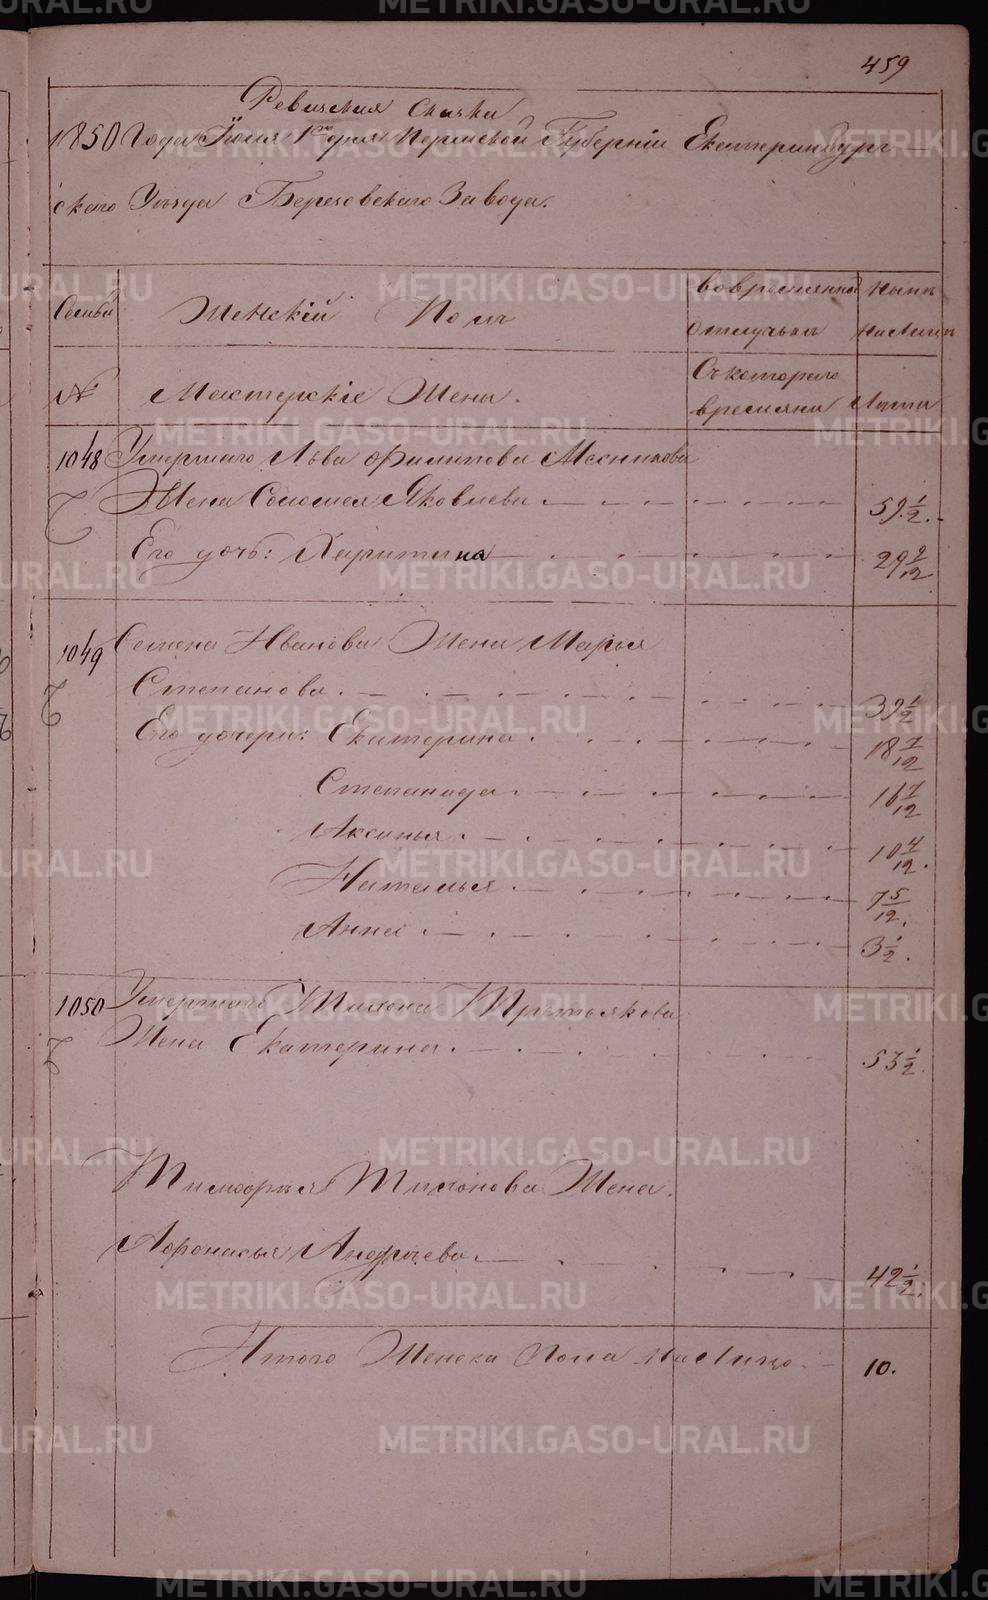 459
Ревизская Сказка
1850 Года Іюня 1го дня Пермской Губерніи Екатеринбург-
скаго Уѣзда Березовскаго Завода.
Семьи Женскій Полъ вовременной отлучькѣ Нынѣ на Лицѣ
№ Мастерскіе Жены. Съ котораго времяни Лѣта
1048 Умершаго Льва Филипова Мясникова
Жена Соломея Яковлева 59 1/2.
Его дочь: Харитина 29 9/12
1049 Семена Иванова Жена Марья
Степанова. 39 1/2
Его дочери: Екатерина. 18 7/12
Степанида 16 7/12
Аксинья. 10 4/12.
Наталья. 7 5/12.
Анна. 3 1/2.
1050 Умершаго Тихона Третьякова
Жена Екатерина. 53 1/2.
Тимофея Тихонова Жена.
Афонасья Андреева 42 1/2.
Итого Женска Пола на Лицо 10.
METRIKI.GASO-URAL.RU